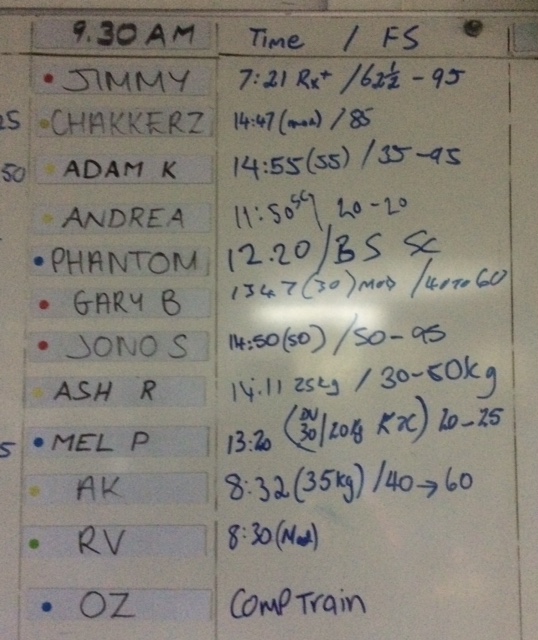 9.30 AM Time / FS
JIMMY 7:21 Rx+ / 62½ - 95
25 CHAKKERZ 14:47 (mod) / 85
50 ADAM K 14:55 (55) / 35 - 95
ANDREA 11:50 SC / 20 - 20
PHANTOM 12.20 / BS SC
GARY B 1347 (30) MOD / 40 TO 60
JONO S 14:50 (50) / 50 - 95
ASH R 14.11 25kg / 30 - 50kg
5 MEL P 13:20 (DU 30 / 20kg Rx) 20 - 25
AK 8:32 (35kg) / 40 → 60
RV 8:30 (Mod)
OZ COMP Train